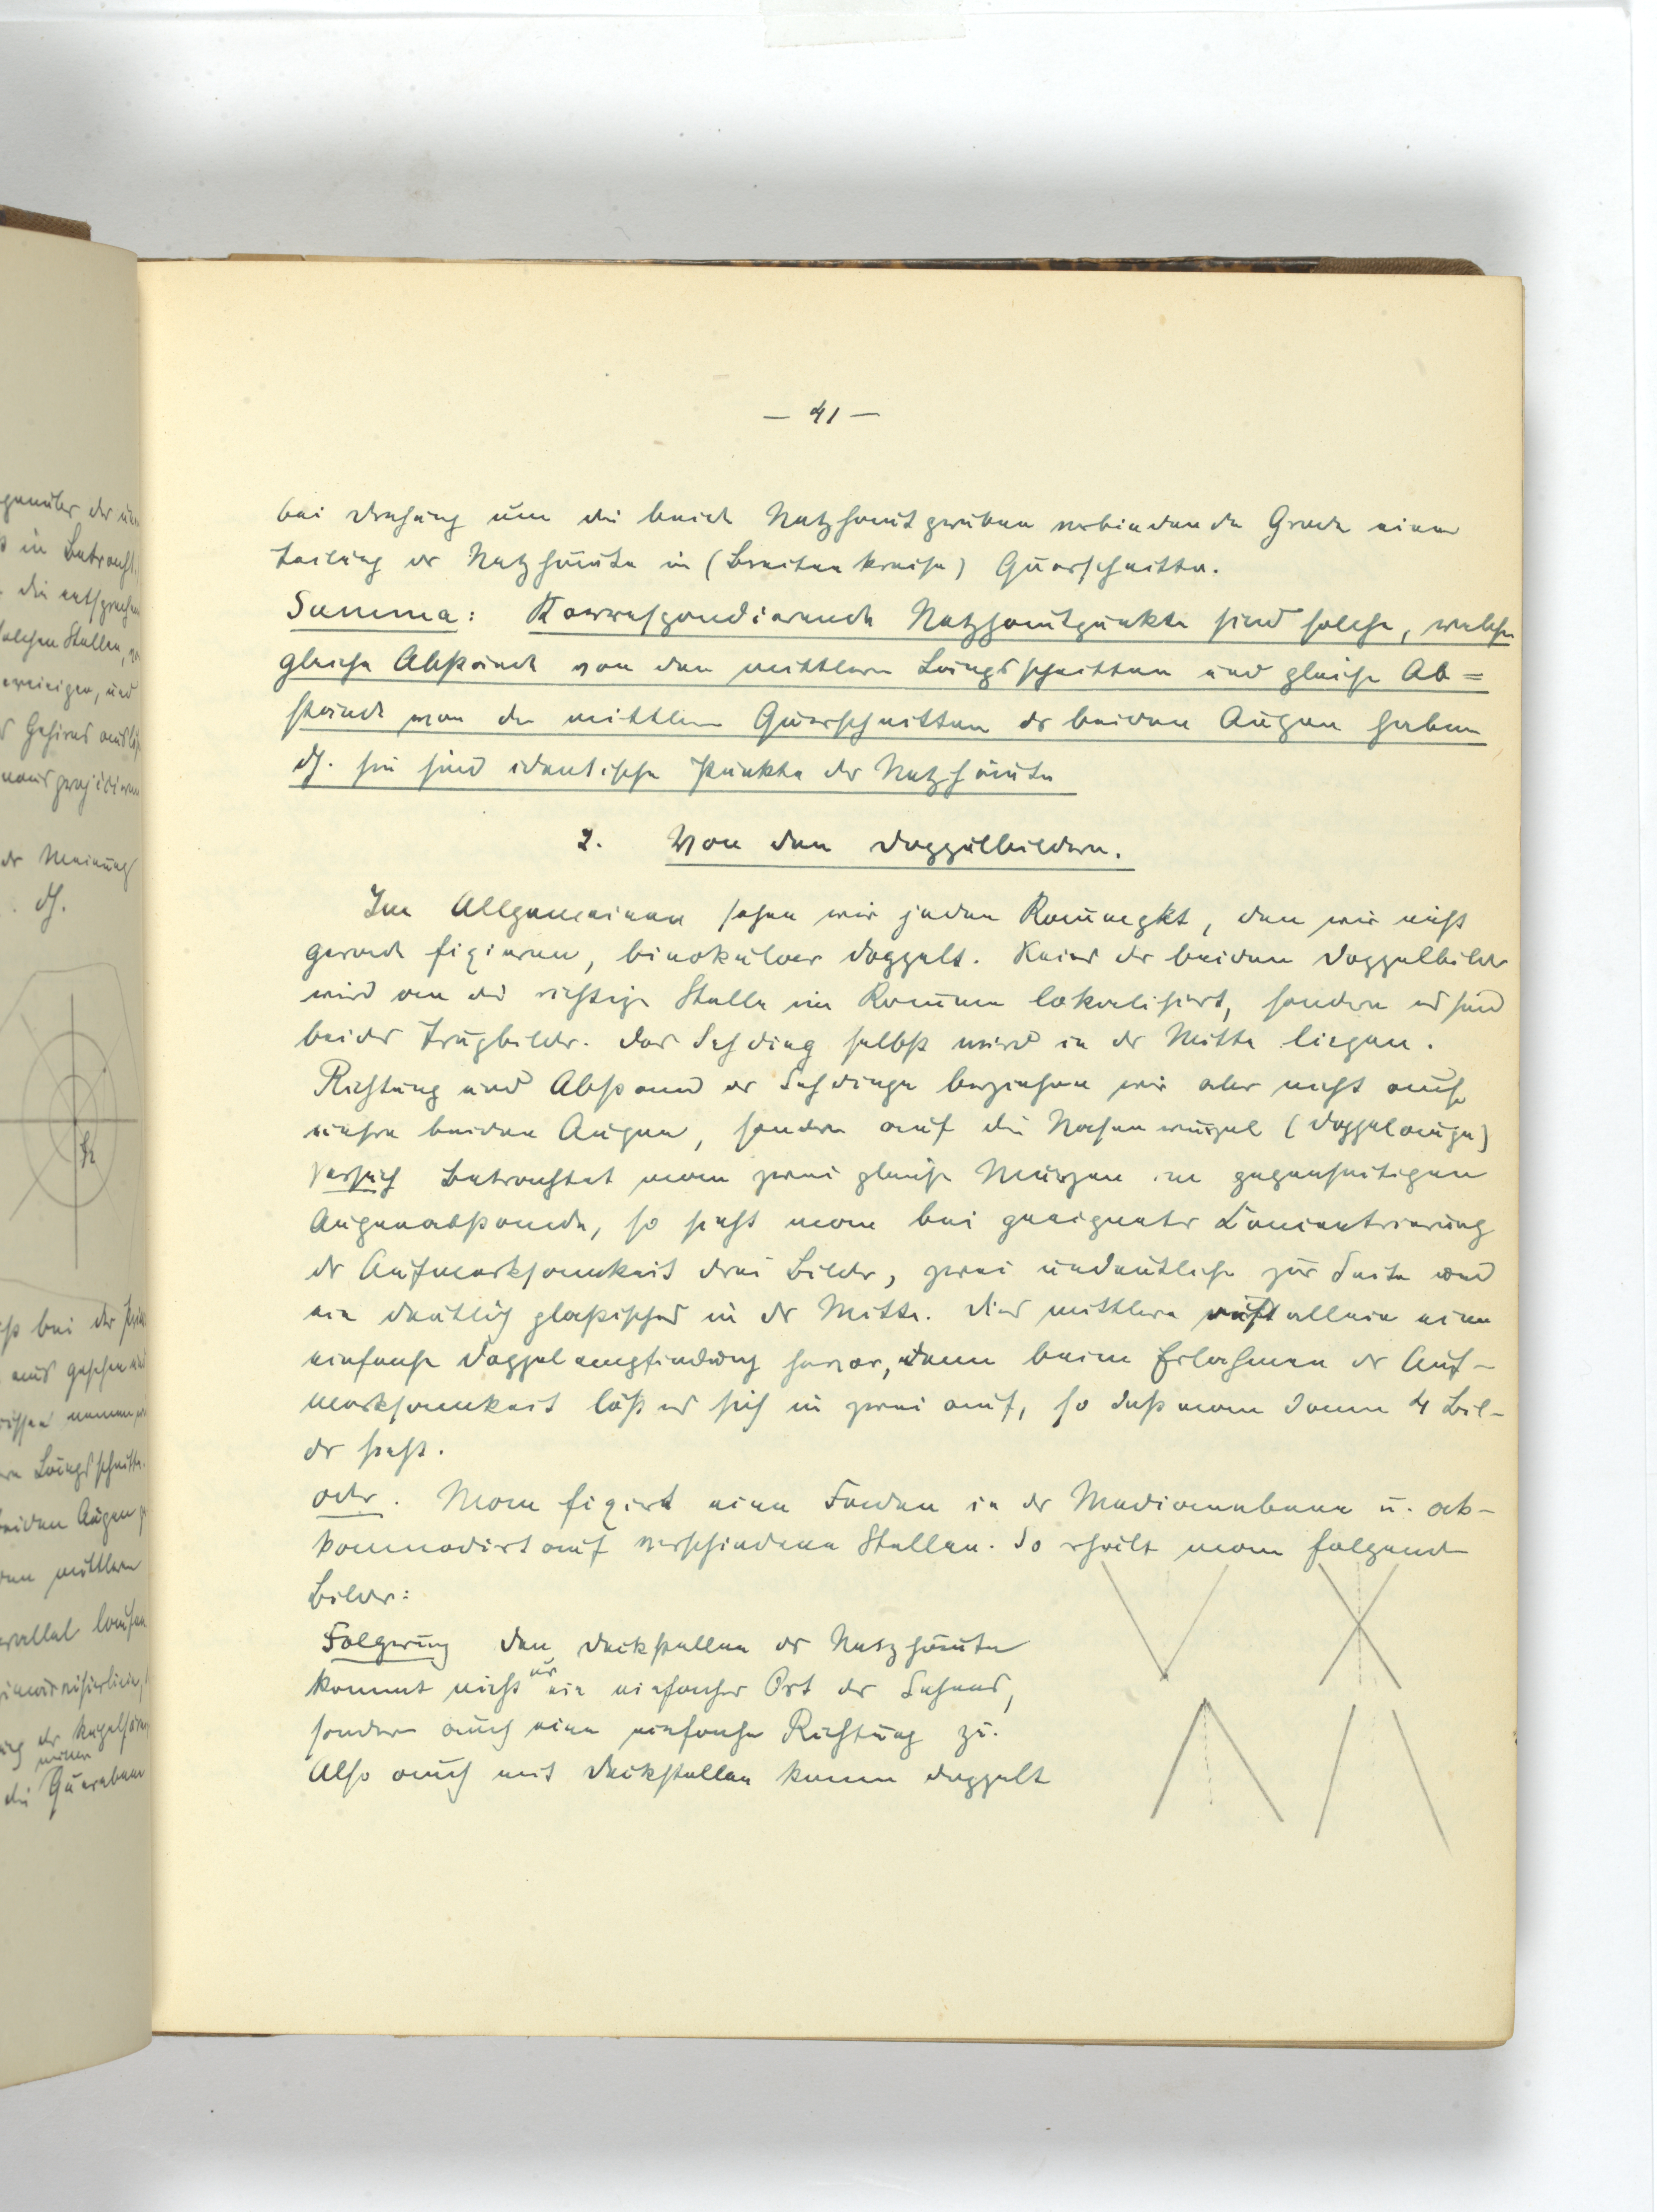 — 41 —
bei Drehung um die beide Netzhautgruben verbindende Grade eine
Teilung der Netzhäute in (Breitenkreise) Querschnitte.
Summa: Korrespondierende Netzhautpunkte sind solche, welche
gleiche Abstände von den mittlern Längsschnitten und gleiche Ab=
stände von den mittlern Querschnitten der beiden Augen haben
dh. sie sind identische Punkte der Netzhäute
2. Von den Doppelbildern.
Im Allgemeinen sehen wir jeden Raumpkt, den wir nicht
gerade fixieren, binokular doppelt. Keines der beiden Doppelbilder
wird an die richtige Stelle im Raume lokalisiert, sondern es sind
beides Trugbilder. Das Sehding selbst wird in der Mitte liegen.
Richtung und Abstand der Sehdinge beziehen wir aber nicht auf
unsre beiden Augen, sondern auf die Nasenwurzel (Doppelauge)
Versuch Betrachtet man zwei gleiche Münzen im gegenseitigen
Augenabstande, so sieht man bei geeigneter Concentrierung
der Aufmerksamkeit drei Bilder, zwei undeutliche zur Seite und
ein deutlich plastisches in der Mitte. Dies mittlere ruft allein eine
einfache Doppelempfindung hervor, denn beim Erlahmen der Auf-
merksamkeit löst es sich in zwei auf, so daß man dann 4 Bil-
der sieht.
oder. Man fixiert einen Faden in der Medianebene u. ak-
kommodiert auf verschiedene Stellen. So erhält man folgende
Bilder:
Folgerung Den Deckstellen der Netzhäute
kommt nicht nur ein einfacher Ort des Sehens,
sondern auch eine einfache Richtung zu.
Also auch mit Deckstellen kann doppelt